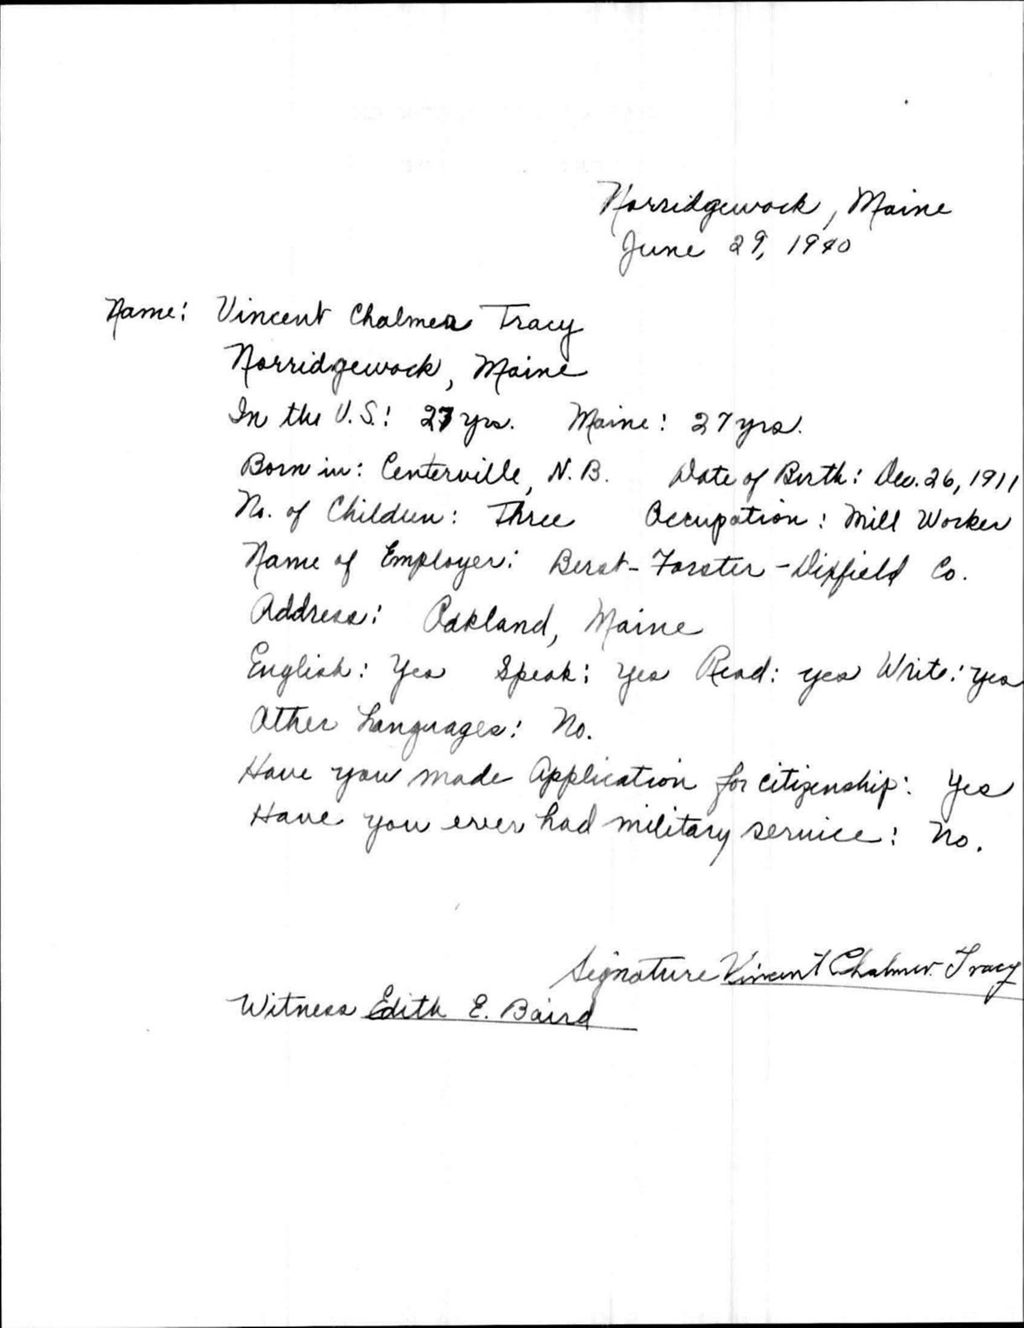 Norridgewock, Maine
June 29, 1940
Name: Vincent Chalmers Tracy
Norridgewock, Maine
In the U.S: 27 yrs. Maine: 27 yrs.
Born in: Centerville, N.B. Date of Birth: Dec. 26, 1911
No. of Children: Three Occupation: Mill Worker
Name of Employer: Berst-Forster-Dixfield Co.
Address: Oakland, Maine
English: Yes Speak: Yes Read: yes Write: yes
Other Languages: No.
Have you made Application for citizenship: Yes
Have you ever had military service: No.
Signature Vincent Chalmer Tracy
Witness Edith E. Baird